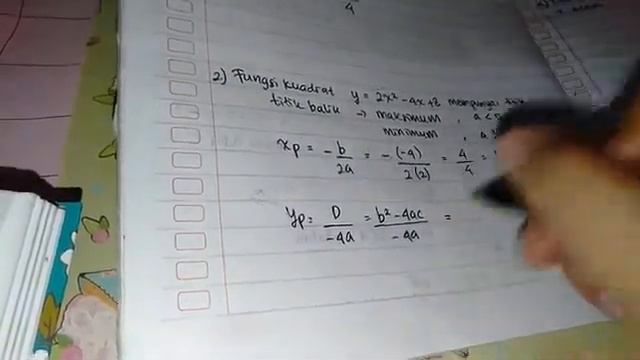 4
2) Fungsi kuadrat y = 2x² - 4x + 8 mempunyai
titik balik → maksimum , a <
minimum , a
xp = - b/2a = - (-4)/2(2) = 4/4 =
yp = D/-4a = b² - 4ac/-4a =